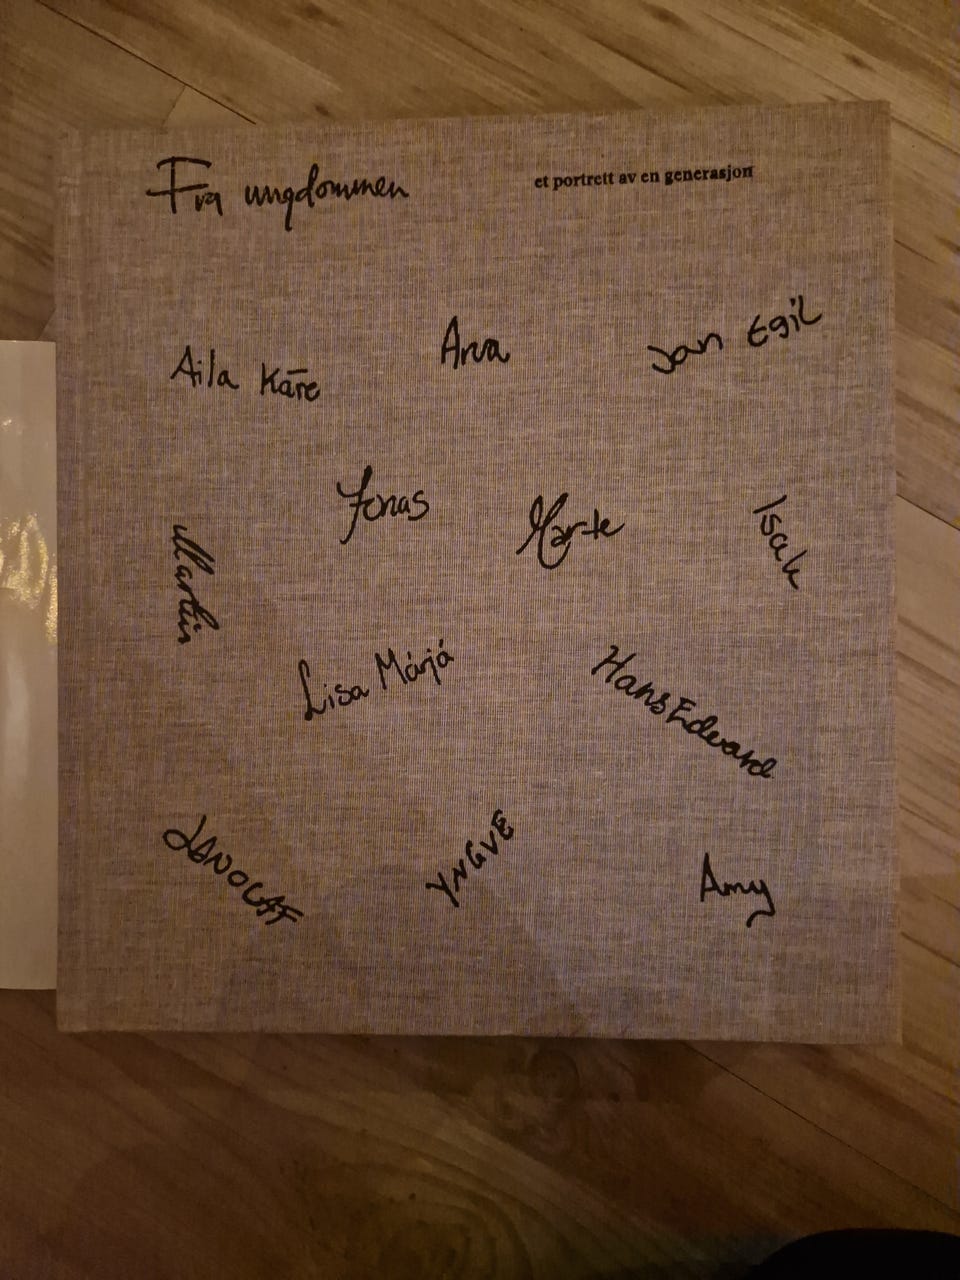 Fra ungdommen
et portrett av en generasjon
Aila Kåre
Arva
Jan Egil
Jonas
Marte
Isak
Martin
Lisa Márjá
Hans Edvard
JAN OLAF
YNGVE
Amy